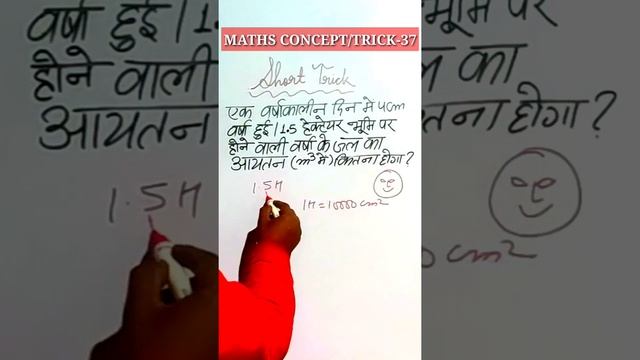 MATHS CONCEPT/TRICK-37
Short Trick
एक वर्षाकालीन दिन मे 4cm
वर्षा हुई। 1.5 हेक्टेयर भूमि पर
होने वाली वर्षा के जल का
आयतन (m³ मे) कितना होगा?
1.5H
1H = 10000 cm²